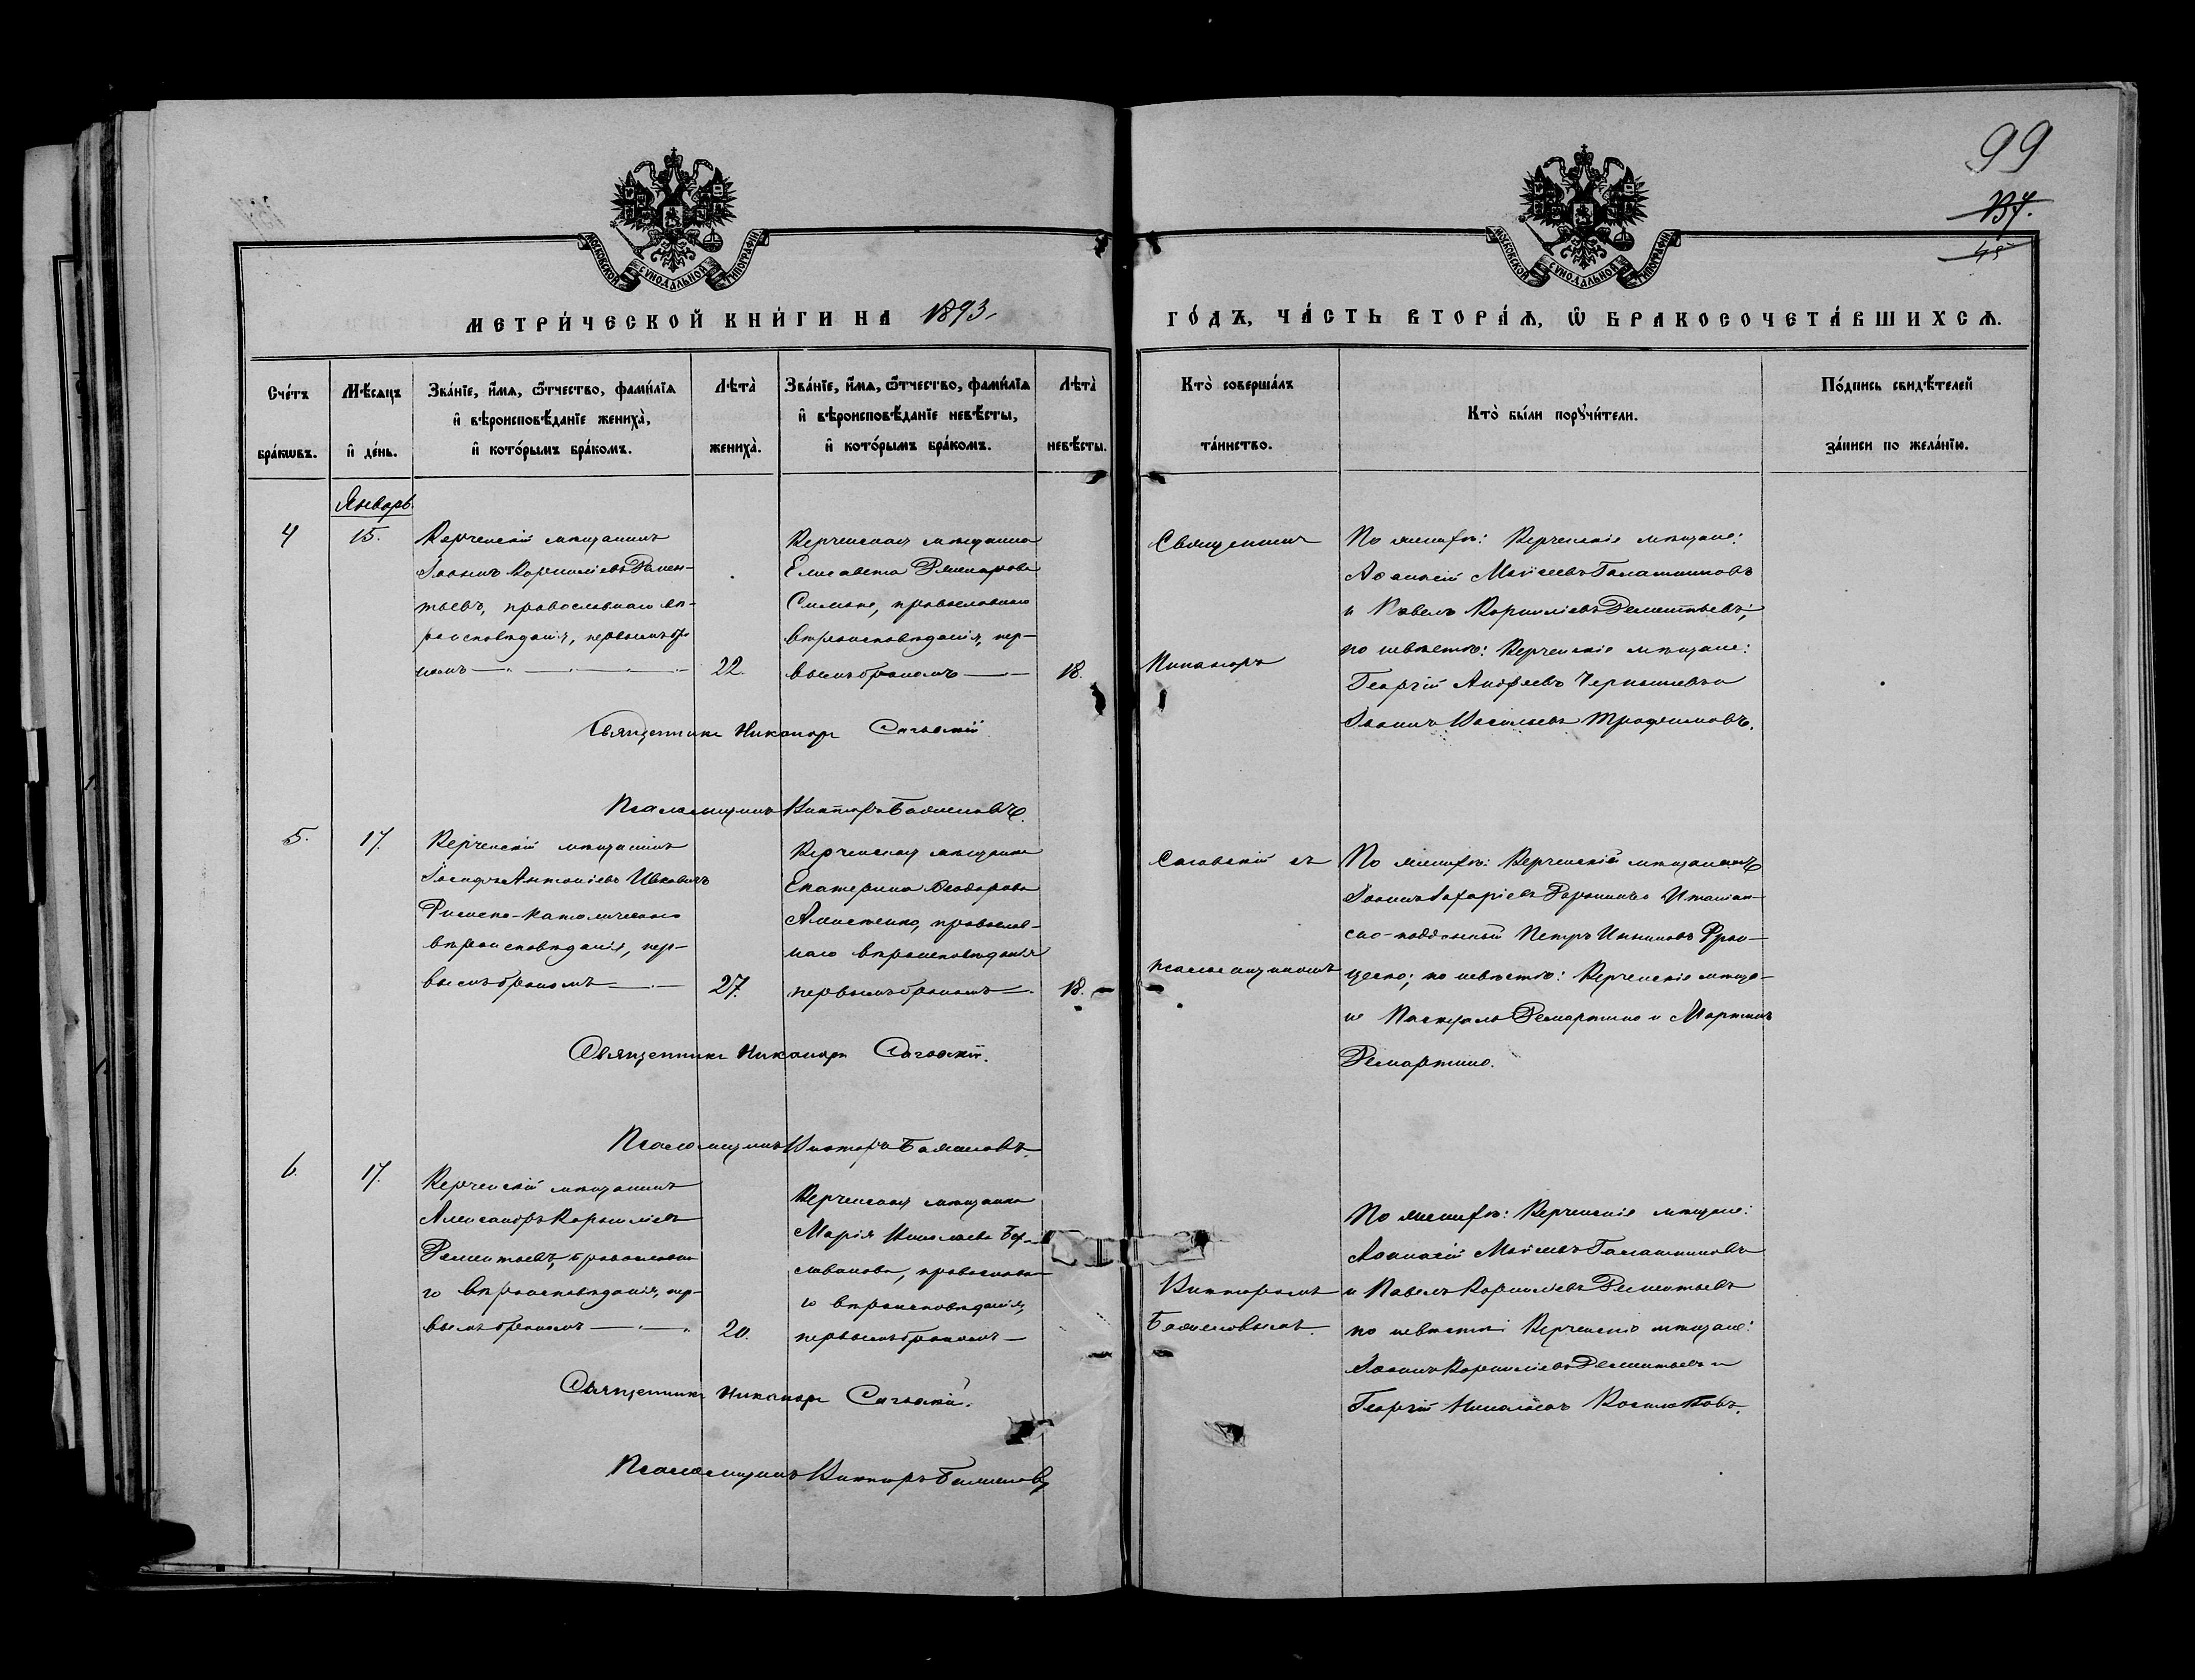 99
137.
МОСКОВСКОЙ СУНОДАЛЬНОЙ ТИПОГРАФІИ
МОСКОВСКОЙ СУНОДАЛЬНОЙ ТИПОГРАФІИ
МЕТРИ́ЧЕСКОЙ КНИ́ГИ НА 1893
ГО́ДЪ, ЧА́СТЬ ВТОРА́Ѧ, Ѽ БРАКОСОЧЕТА́ВШИХСѦ.
Сче́тъ бра́кѡвъ.
Мѣ́сяцъ и҆ де́нь.
Зва́нїе, и҆́мѧ, ѻ҆́тчество, фами́лїѧ и҆ вѣроисповѣ́данїе жениха̀, и҆ кото́рымъ бра́комъ.
Лѣта̀ жениха̀.
Зва́нїе, и҆́мѧ, ѻ҆́тчество, фами́лїѧ и҆ вѣроисповѣ́данїе невѣ́сты, и҆ кото́рымъ бра́комъ.
Лѣта̀ невѣ́сты.
Кто̀ соверша́лъ та́инство.
Кто̀ бы́ли порꙋчи́тели.
По́дпись свидѣ́телей за́писи по жела́нїю.
Январь.
4
15.
Керченскій мѣщанинъ
Іоаннъ Корниліевъ Демен-
тьевъ, православнаго вѣ-
роисповѣданія, первымъ бра
комъ
22.
Керченская мѣщанка
Елисавета
православнаго
вѣроисповѣданія, пер-
вымъ бракомъ
18.
Священникъ
Никаноръ
По женихѣ: Керченскіе мѣщане:
Аѳанасій Моѵсеевъ Галашниковъ
и Павелъ Корниліевъ Дементьевъ;
по невѣстѣ: Керченскіе мѣщане:
Георгій Андреевъ Чернышевъ и
Іоаннъ Васильевъ Трофимовъ.
Священникъ Никаноръ Саговскій
Псаломщикъ Викторъ Баженовъ.
5.
17.
Керченскій мѣщанинъ
Іосифъ Антоніевъ Ивковичъ
Римско-католическаго
вѣроисповѣданія, пер-
вымъ бракомъ
27.
Керченская мѣщанка
Екатерина Ѳеодорова
православ-
наго вѣроисповѣданія
первымъ бракомъ
18.
Саговскій съ
псаломщикомъ
По женихѣ: Керченскій мѣщанинъ
Іоаннъ Захаріевъ Италіан-
ско-подданный Петръ Фран-
ческо; по невѣстѣ: Керченскіе мѣща-
не Паскуаль Демартино и Мартинъ
Демартино.
Священникъ Никаноръ Саговскій.
Псаломщикъ Викторъ Баженовъ.
6.
17.
Керченскій мѣщанинъ
Александръ Корниліевъ
Дементьевъ, православна
го вѣроисповѣданія, пер-
вымъ бракомъ
20.
Керченская мѣщанка
Марія Николаева
православна
го вѣроисповѣданія,
первымъ бракомъ
Викторомъ
Баженовымъ.
По женихѣ: Керченскіе мѣщане:
Аѳанасій Моѵсеевъ Галашниковъ
и Павелъ Корниліевъ Дементьевъ
по невѣстѣ: Керченскіе мѣщане:
Іоаннъ Корниліевъ Дементьевъ и
Георгій Николаевъ
Священникъ Никаноръ Саговскій.
Псаломщикъ Викторъ Баженовъ